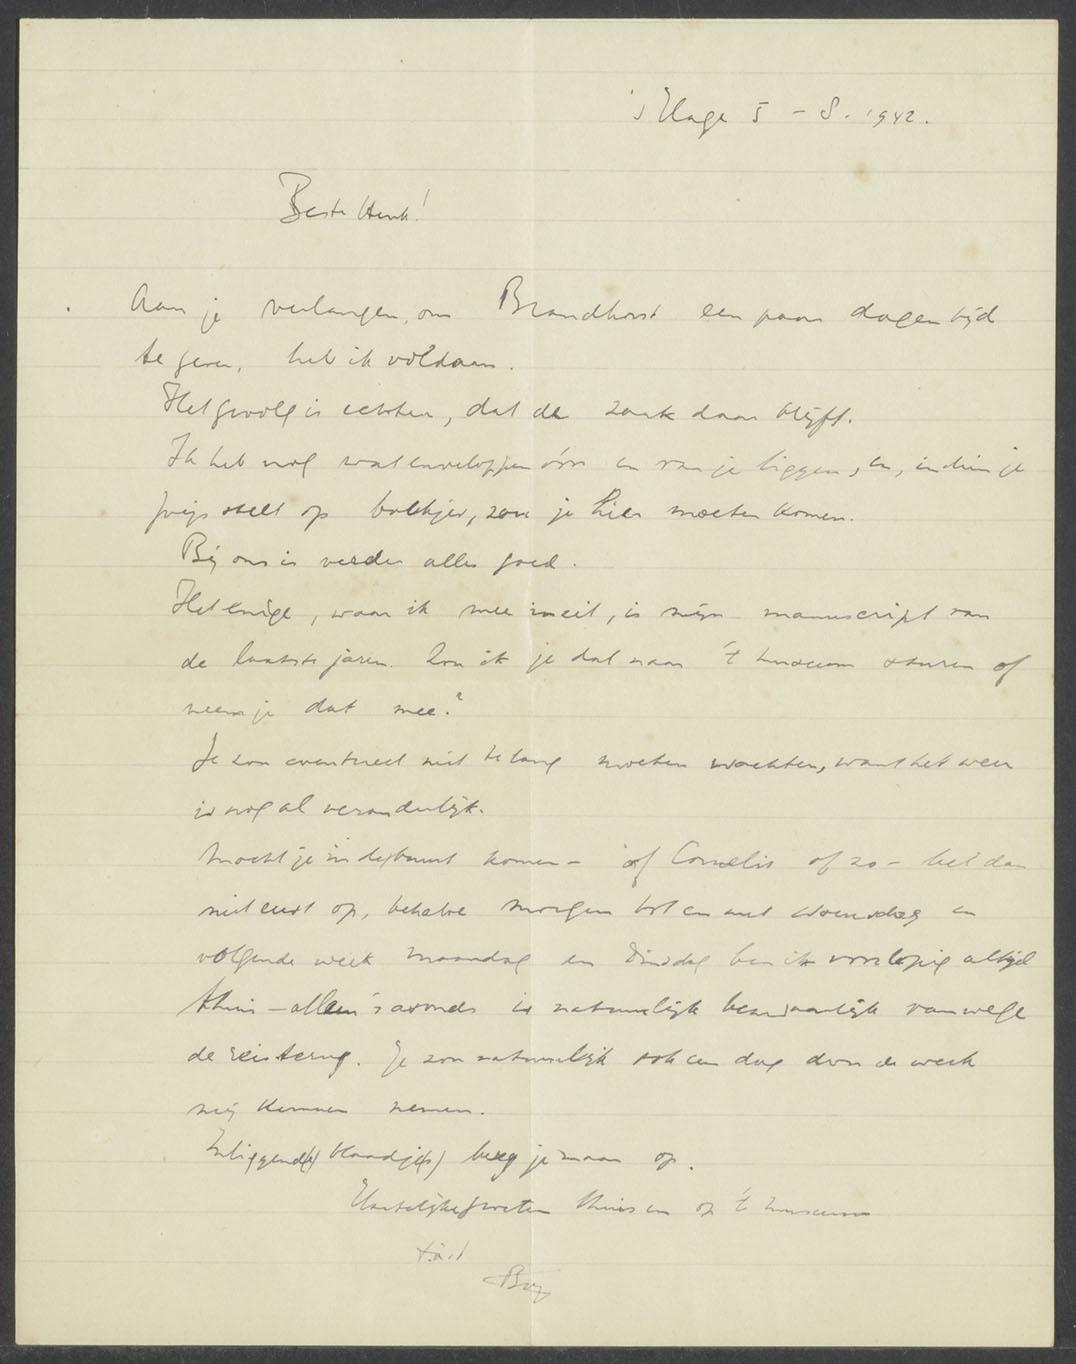 's Hage 5 - 8. 1942.
Beste Henk!
Aan je verlangen, om Brandhorst een paar dagen tijd
te geven, heb ik voldaan.
Het gevolg is echter, dat de zaak daar blijft.
Ik heb nog wat enveloppen van je liggen, en, indien je
prijs stelt op boekjes, zou je hier moeten komen.
Bij ons is verder alles goed.
Het enige, waar ik mee inzit, is mijn manuscript van
de laatste jaren. Zou ik je dat naar 't museum sturen of
neem je dat mee?
Je zou eventueel niet te lang moeten wachten, want het weer
is nog al veranderlijk.
Mocht je in de buurt komen - of Cornelis of zo - bel dan
niet eerst op, behalve morgen tot en met woensdag en
volgende week maandag en dinsdag ben ik voorlopig altijd
thuis - alleen 's avonds is natuurlijk bezwaarlijk vanwege
de . Je zou natuurlijk ook een dag door de week
vrij kunnen nemen.
Inliggend(e) blaadje(s) berg je maar op.
Hartelijke groeten thuis en op 't museum
t.à.t.